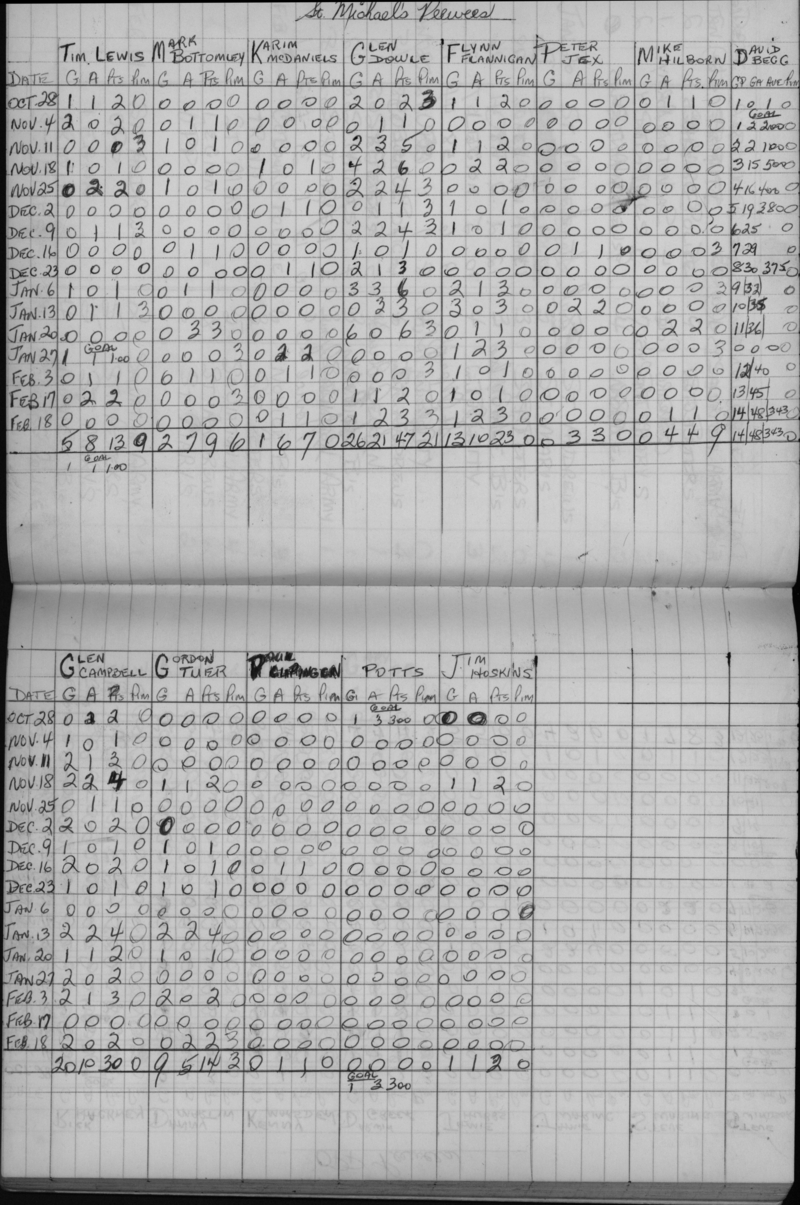 St. Michael's Peewees
TIM LEWIS MARK BOTTOMLEY KARIM MCDANIELS GLEN DOWLE FLYNN FLANNIGAN PETER JEX MIKE HILBORN DAVID BEGG
DATE G A Pts Pim G A Pts Pim G A Pts Pim G A Pts Pim G A Pts Pim G A Pts Pim G A Pts Pim GP GA AVE Pim
OCT. 28 1 1 2 0 0 0 0 0 0 0 0 0 2 0 2 3 1 1 2 0 0 0 0 0 0 1 1 0 1 0 1 0
NOV. 4 2 0 2 0 0 1 1 0 0 0 0 0 0 1 1 0 0 0 0 0 0 0 0 0 0 0 0 0 GOAL 1 2 200 0
NOV. 11 0 0 0 3 1 0 1 0 0 0 0 0 2 3 5 0 1 1 2 0 0 0 0 0 0 0 0 0 2 2 100 0
NOV. 18 1 0 1 0 0 0 0 0 1 0 1 0 4 2 6 0 0 2 2 0 0 0 0 0 0 0 0 0 3 15 500 0
NOV 25 0 2 2 0 1 0 1 0 0 0 0 0 2 2 4 3 0 0 0 0 0 0 0 0 0 0 0 0 4 16 400 0
DEC. 2 0 0 0 0 0 0 0 0 0 1 1 0 0 1 1 3 1 0 1 0 0 0 0 0 0 0 0 0 5 19 380 0
DEC. 9 0 1 1 3 0 0 0 0 0 0 0 0 2 2 4 3 1 0 1 0 0 0 0 0 0 0 0 0 6 25 0
DEC. 16 0 0 0 0 0 1 1 0 0 0 0 0 1 0 1 0 0 0 0 0 0 1 1 0 0 0 0 3 7 29 0
DEC. 23 0 0 0 0 0 0 0 0 0 1 1 0 2 1 3 0 0 0 0 0 0 0 0 0 0 0 0 0 8 30 375 0
JAN. 6 1 0 1 0 0 1 1 0 0 0 0 0 3 3 6 0 2 1 3 0 0 0 0 0 0 0 0 3 9 32 0
JAN. 13 0 1 1 3 0 0 0 0 0 0 0 0 0 3 3 0 3 0 3 0 0 2 2 0 0 0 0 0 10 35 0
JAN. 20 0 0 0 0 0 3 3 0 0 0 0 0 6 0 6 3 0 1 1 0 0 0 0 0 0 2 2 0 11 36 0
JAN 27 1 GOAL 1 1.00 0 0 0 0 3 0 2 2 0 0 0 0 0 1 2 3 0 0 0 0 0 0 0 0 3 0 0 0 0
FEB. 3 0 1 1 0 0 1 1 0 0 1 1 0 0 0 0 3 1 0 1 0 0 0 0 0 0 0 0 0 12 40 0
FEB 17 0 2 2 0 0 0 0 3 0 0 0 0 1 1 2 0 1 0 1 0 0 0 0 0 0 0 0 0 13 45 0
FEB. 18 0 0 0 0 0 0 0 0 0 1 1 0 1 2 3 3 1 2 3 0 0 0 0 0 0 1 1 0 14 48 343 0
5 8 13 9 2 7 9 6 1 6 7 0 26 21 47 21 13 10 23 0 0 3 3 0 0 4 4 9 14 48 343 0
1 GOAL 1 1.00
GLEN CAMPBELL GORDON TUER POTTS JIM HOSKINS
DATE G A Pts Pim G A Pts Pim G A Pts Pim G A Pts Pim G A Pts Pim
OCT 28 0 2 2 0 0 0 0 0 0 0 0 0 1 GOAL 3 300 0 0 0 0 0
NOV. 4 1 0 1 0 0 0 0 0 0 0 0 0 0 0 0 0 0 0 0 0
NOV. 11 2 1 3 0 0 0 0 0 0 0 0 0 0 0 0 0 0 0 0 0
NOV. 18 2 2 4 0 1 1 2 0 0 0 0 0 0 0 0 0 1 1 2 0
NOV. 25 0 1 1 0 0 0 0 0 0 0 0 0 0 0 0 0 0 0 0 0
DEC. 2 2 0 2 0 0 0 0 0 0 0 0 0 0 0 0 0 0 0 0 0
DEC. 9 1 0 1 0 1 0 1 0 0 0 0 0 0 0 0 0 0 0 0 0
DEC. 16 2 0 2 0 1 0 1 0 0 1 1 0 0 0 0 0 0 0 0 0
DEC. 23 1 0 1 0 1 0 1 0 0 0 0 0 0 0 0 0 0 0 0 0
JAN 6 0 0 0 0 0 0 0 0 0 0 0 0 0 0 0 0 0 0 0 0
JAN. 13 2 2 4 0 2 2 4 0 0 0 0 0 0 0 0 0 0 0 0 0
JAN. 20 1 1 2 0 1 0 1 0 0 0 0 0 0 0 0 0 0 0 0 0
JAN 27 2 0 2 0 0 0 0 0 0 0 0 0 0 0 0 0 0 0 0 0
FEB. 3 2 1 3 0 2 0 2 0 0 0 0 0 0 0 0 0 0 0 0 0
FEB. 17 0 0 0 0 0 0 0 0 0 0 0 0 0 0 0 0 0 0 0 0
FEB. 18 2 0 2 0 0 2 2 3 0 0 0 0 0 0 0 0 0 0 0 0
20 10 30 0 9 5 14 3 0 1 1 0 0 0 0 0 1 1 2 0
GOAL
1 3 300